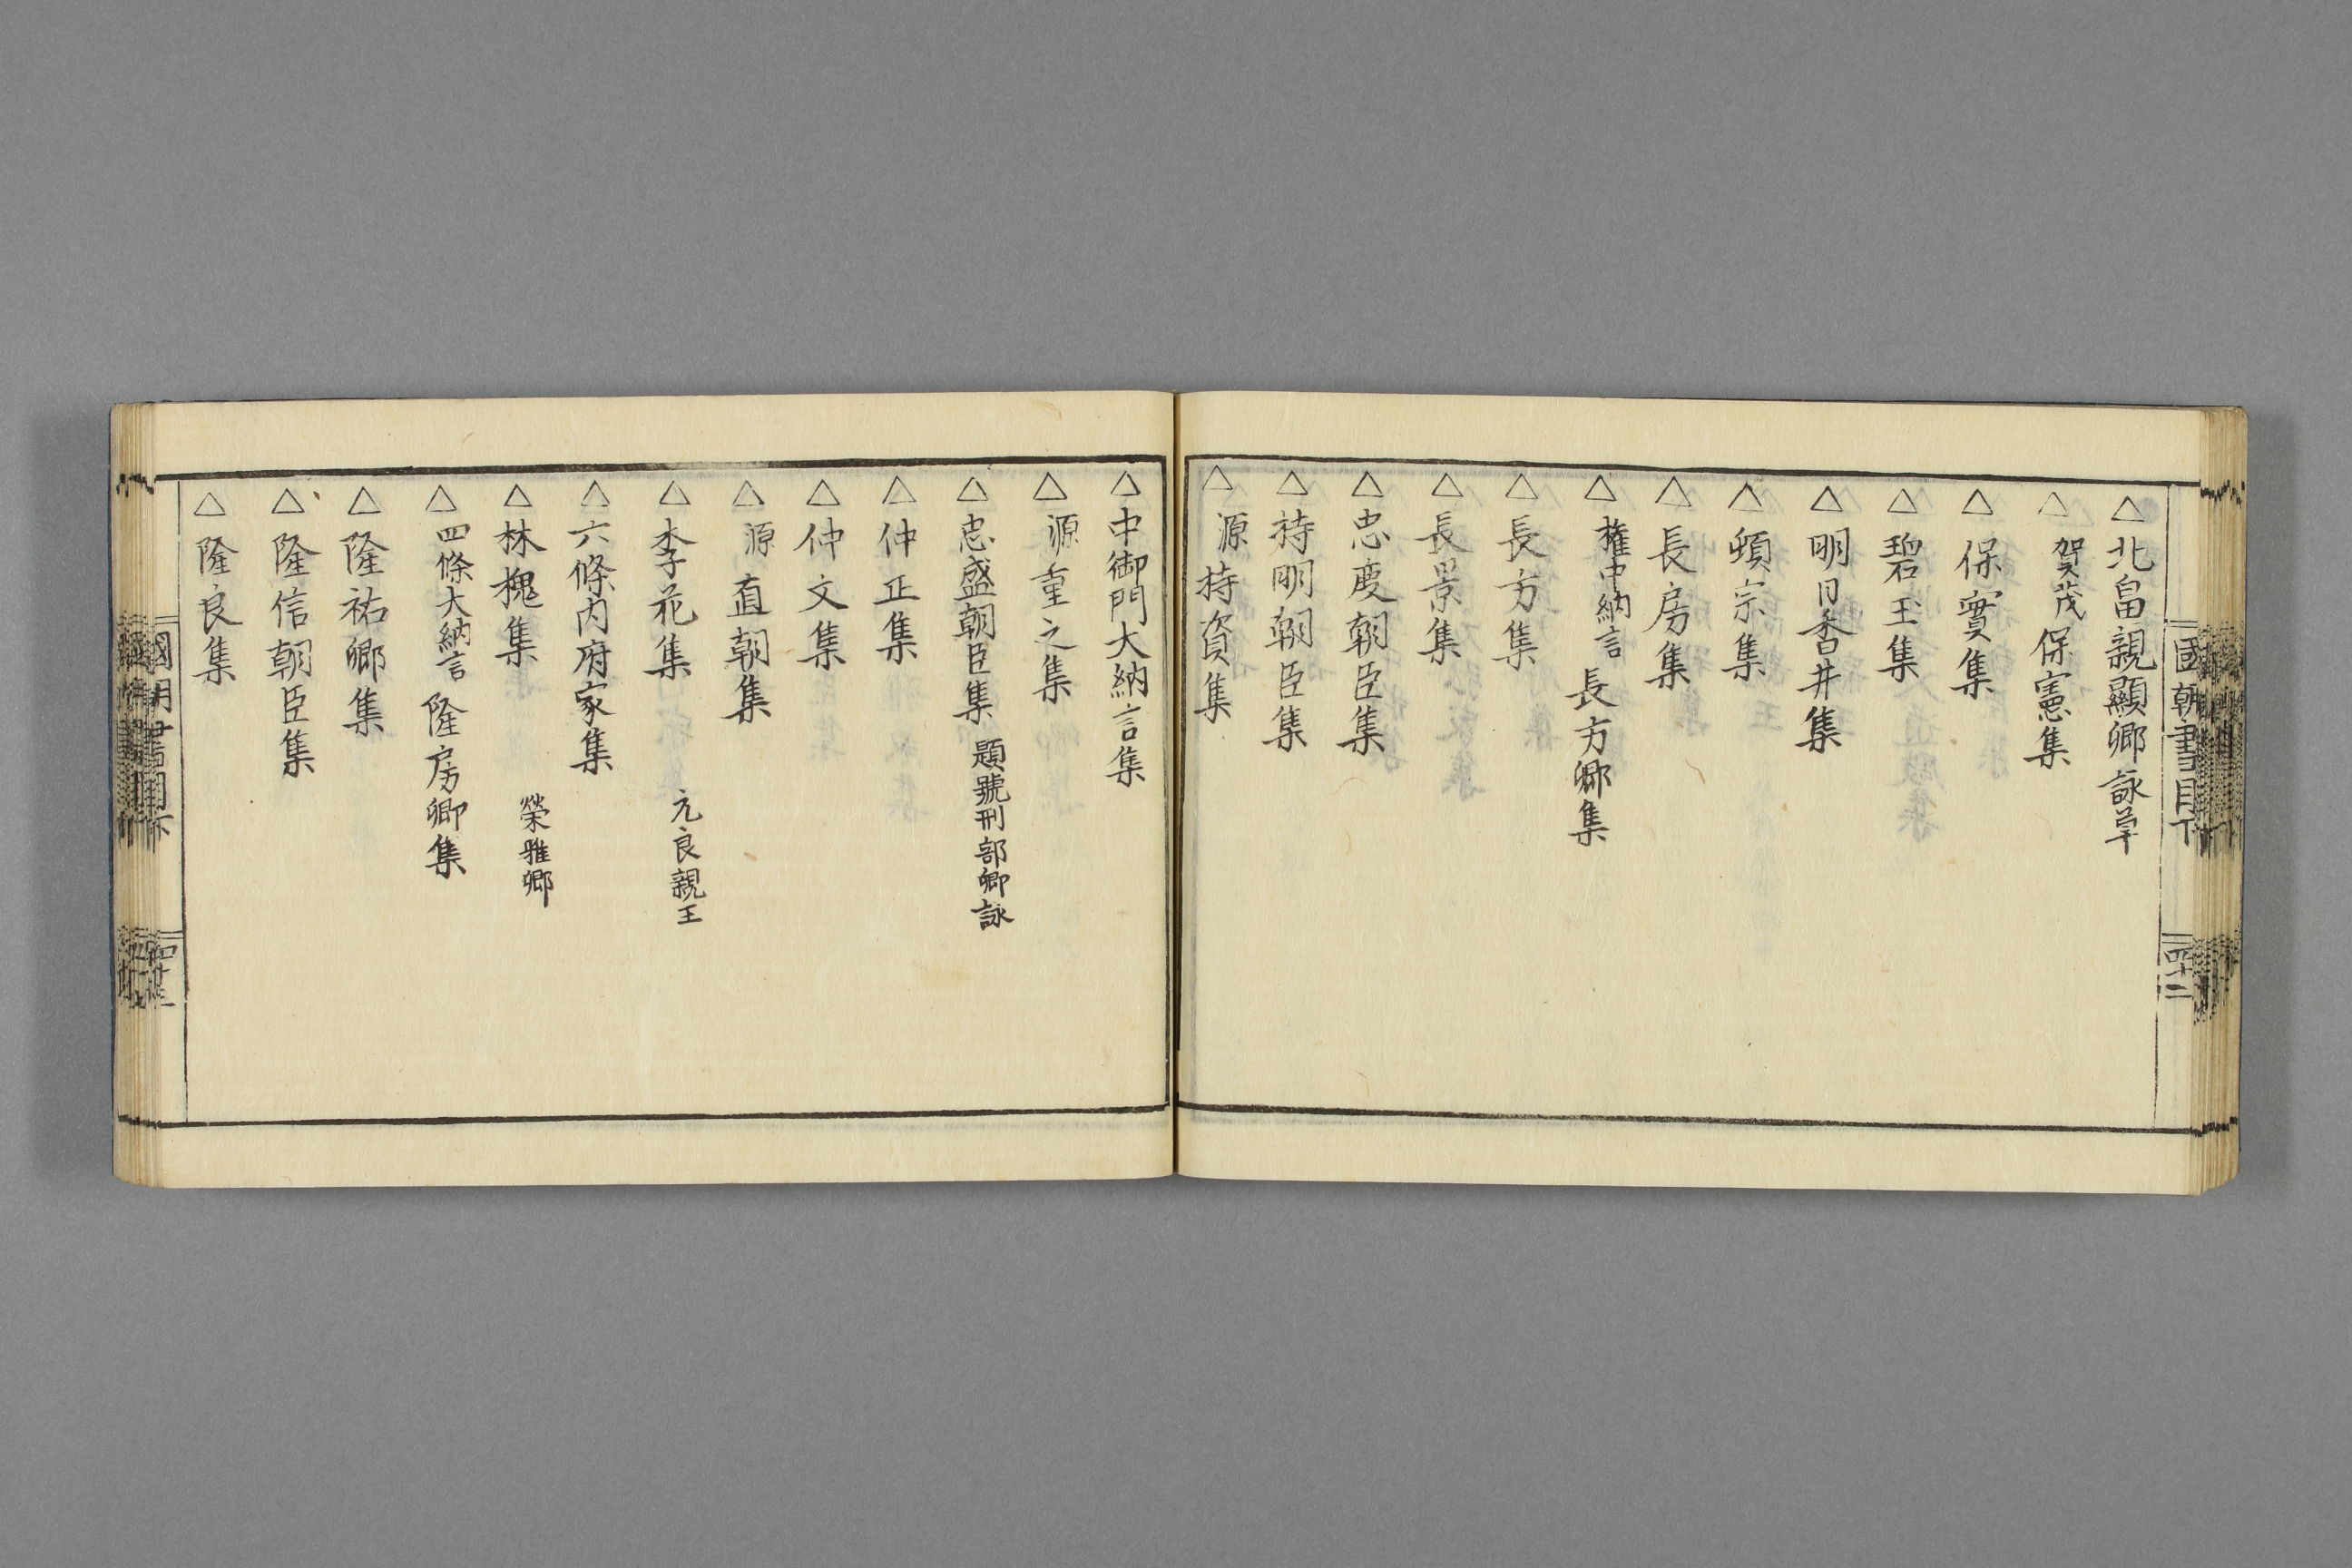 國朝書目下
四十二
△北畠親顯卿詠草
△賀茂保憲集
△保實集
△碧玉集
△明日香井集
△頓宗集
△長房集
△權中納言長方卿集
△長方集
△長景集
△忠度朝臣集
△持明朝臣集
△源持資集
△中御門大納言集
△源重之集
△忠盛朝臣集 題號刑部卿詠
△仲正集
△仲文集
△源直朝集
△李花集 元良親王
△六條内府家集
△林槐集 榮雅卿
△四條大納言隆房卿集
△隆祐卿集
△隆信朝臣集
△隆良集